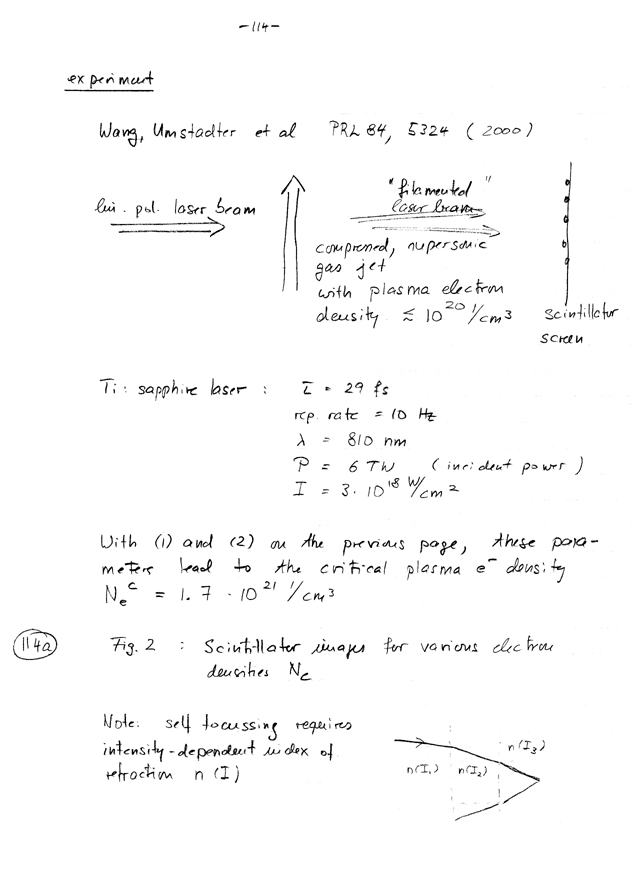 -114-
experiment
Wang, Umstadter et al PRL 84, 5324 (2000)
lin. pol. laser beam
"filamented"
laser beam
compressed, supersonic
gas jet
with plasma electron
density ≲ 10^20 1/cm^3
scintillator
screen
Ti: sapphire laser : τ = 29 fs
rep. rate = 10 Hz
λ = 810 nm
P = 6 TW (incident power)
I = 3·10^18 W/cm^2
With (1) and (2) on the previous page, these para-
meters lead to the critical plasma e^- density
N_e^c = 1.7 · 10^21 1/cm^3
114a Fig. 2 : Scintillator images for various electron
densities N_e
Note: self focussing requires
intensity-dependent index of
refraction n (I)
n(I_1) n(I_2) n(I_3)